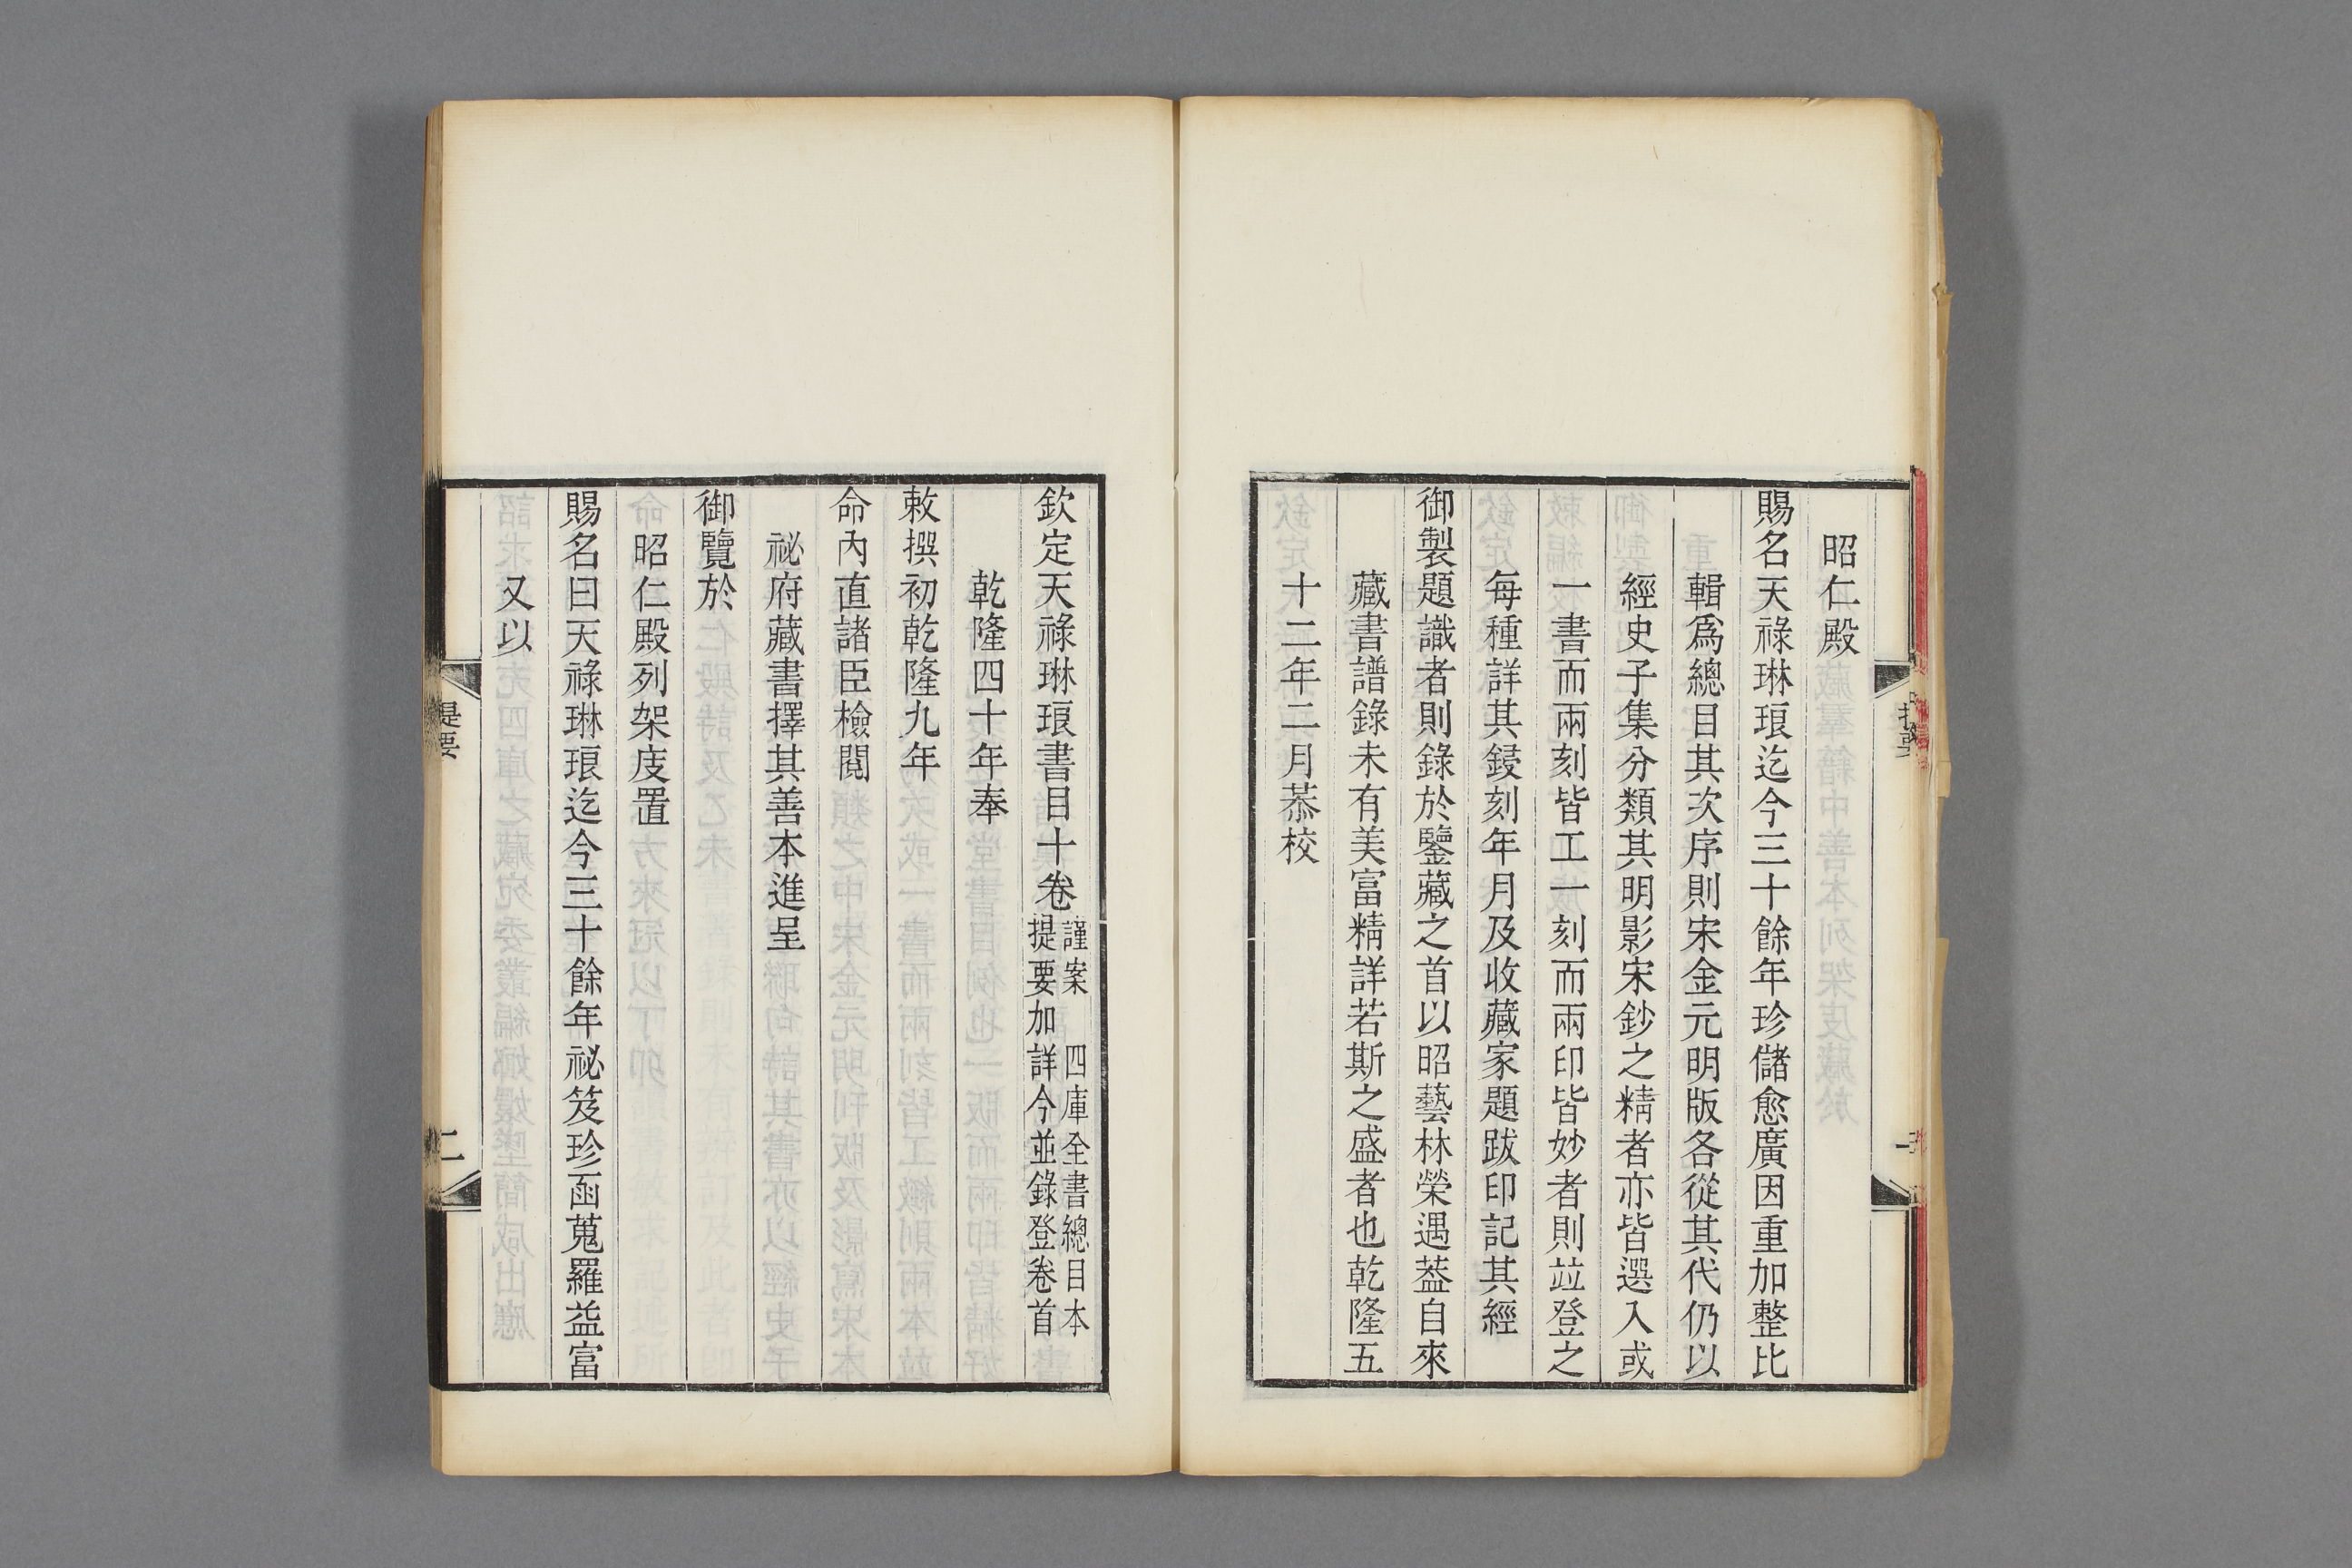 昭仁殿
賜名天祿琳琅迄今三十餘年珍儲愈廣因重加整比
輯爲總目其次序則宋金元明版各從其代仍以
經史子集分類其明影宋鈔之精者亦皆選入或
一書而兩刻皆工一刻而兩印皆妙者則竝登之
每種詳其鋟刻年月及收藏家題跋印記其經
御製題識者則錄於鑒藏之首以昭藝林榮遇葢自來
藏書譜錄未有美富精詳若斯之盛者也乾隆五
十二年二月恭校
欽定天祿琳琅書目十卷
謹案 四庫全書總目本
提要加詳今並錄登卷首
乾隆四十年奉
敕撰初乾隆九年
命內直諸臣檢閱
祕府藏書擇其善本進呈
御覽於
昭仁殿列架庋置
賜名曰天祿琳琅迄今三十餘年祕笈珍函蒐羅益富
又以
提要
二